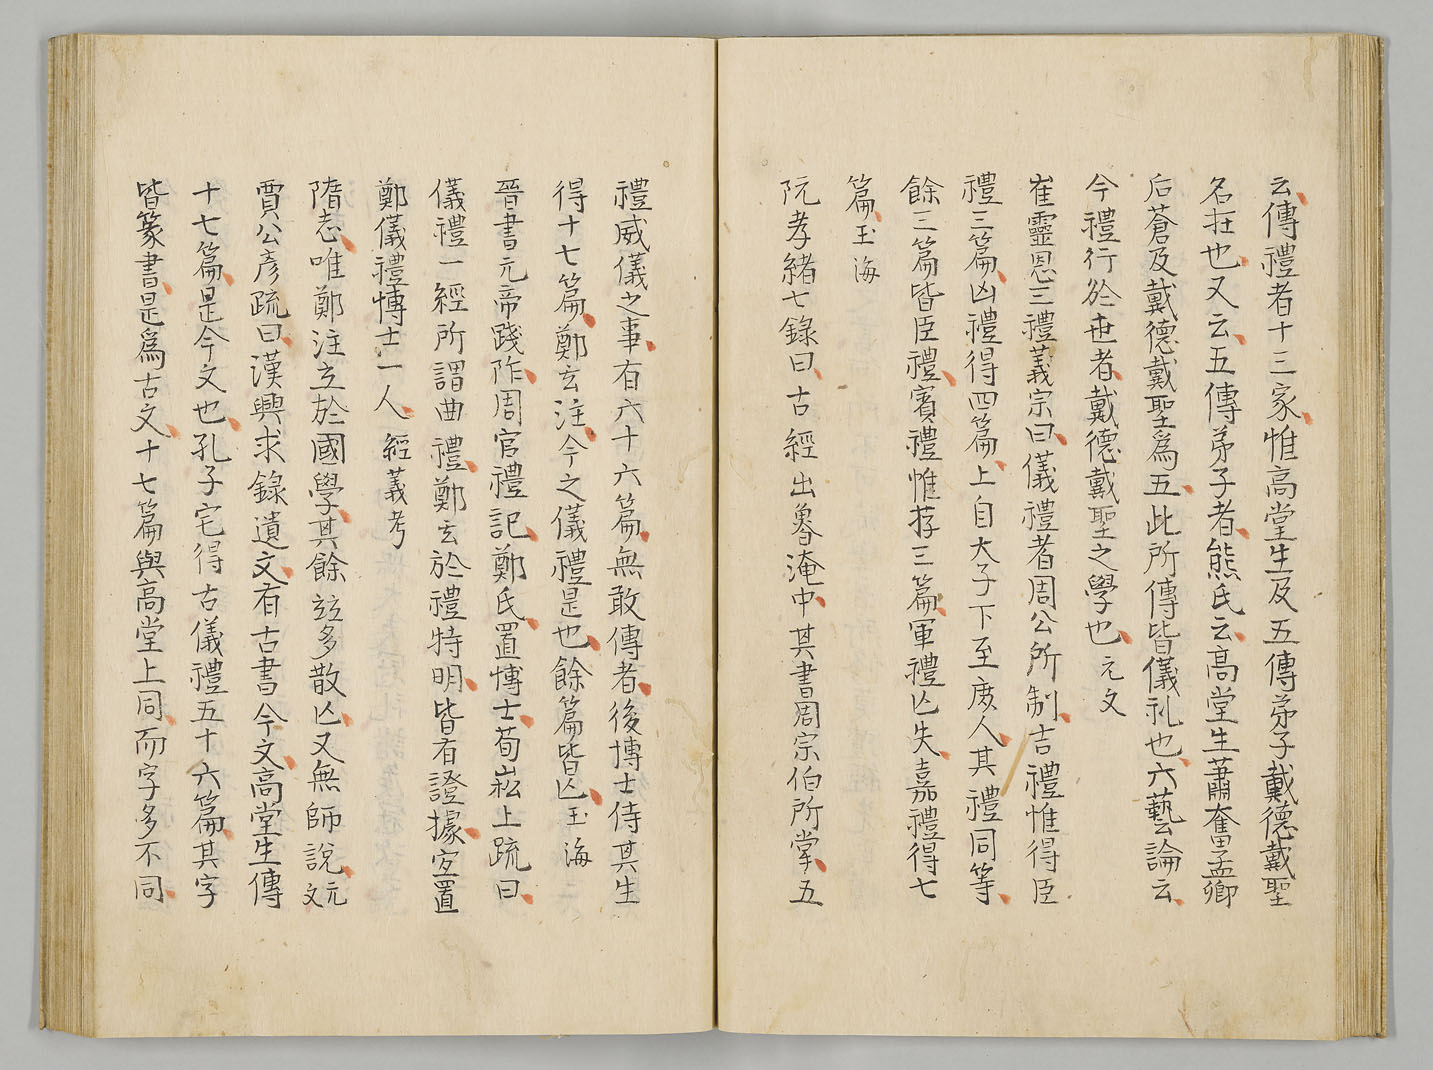 云傳禮者十三家惟高堂生及五傳弟子戴德戴聖
名在也又云五傳弟子者熊氏云高堂生蕭奮孟卿
后蒼及戴德戴聖爲五此所傳皆儀礼也六藝論云
今禮行於世者戴德戴聖之學也元文
崔靈恩三禮義宗曰儀禮者周公所制吉禮惟得臣
禮三篇凶禮得四篇上自大子下至庻人其禮同等
餘三篇皆臣禮賓禮惟存三篇軍禮亾失嘉禮得七
篇玉海
阮孝緒七錄曰古經出魯淹中其書周宗伯所掌五
禮威儀之事有六十六篇無敢傳者後博士侍其生
得十七篇鄭玄注今之儀禮是也餘篇皆亾玉海
晉書元帝踐阼周官禮記鄭氏置博士荀崧上疏曰
儀禮一經所謂曲禮鄭玄於禮特明皆有證據宜置
鄭儀禮博士一人經義考
隋志唯鄭注立於國學其餘竝多散亾又無師說元文
賈公彥疏曰漢興求錄遺文有古書今文高堂生傳
十七篇是今文也孔子宅得古儀禮五十六篇其字
皆篆書是爲古文十七篇與高堂上同而字多不同